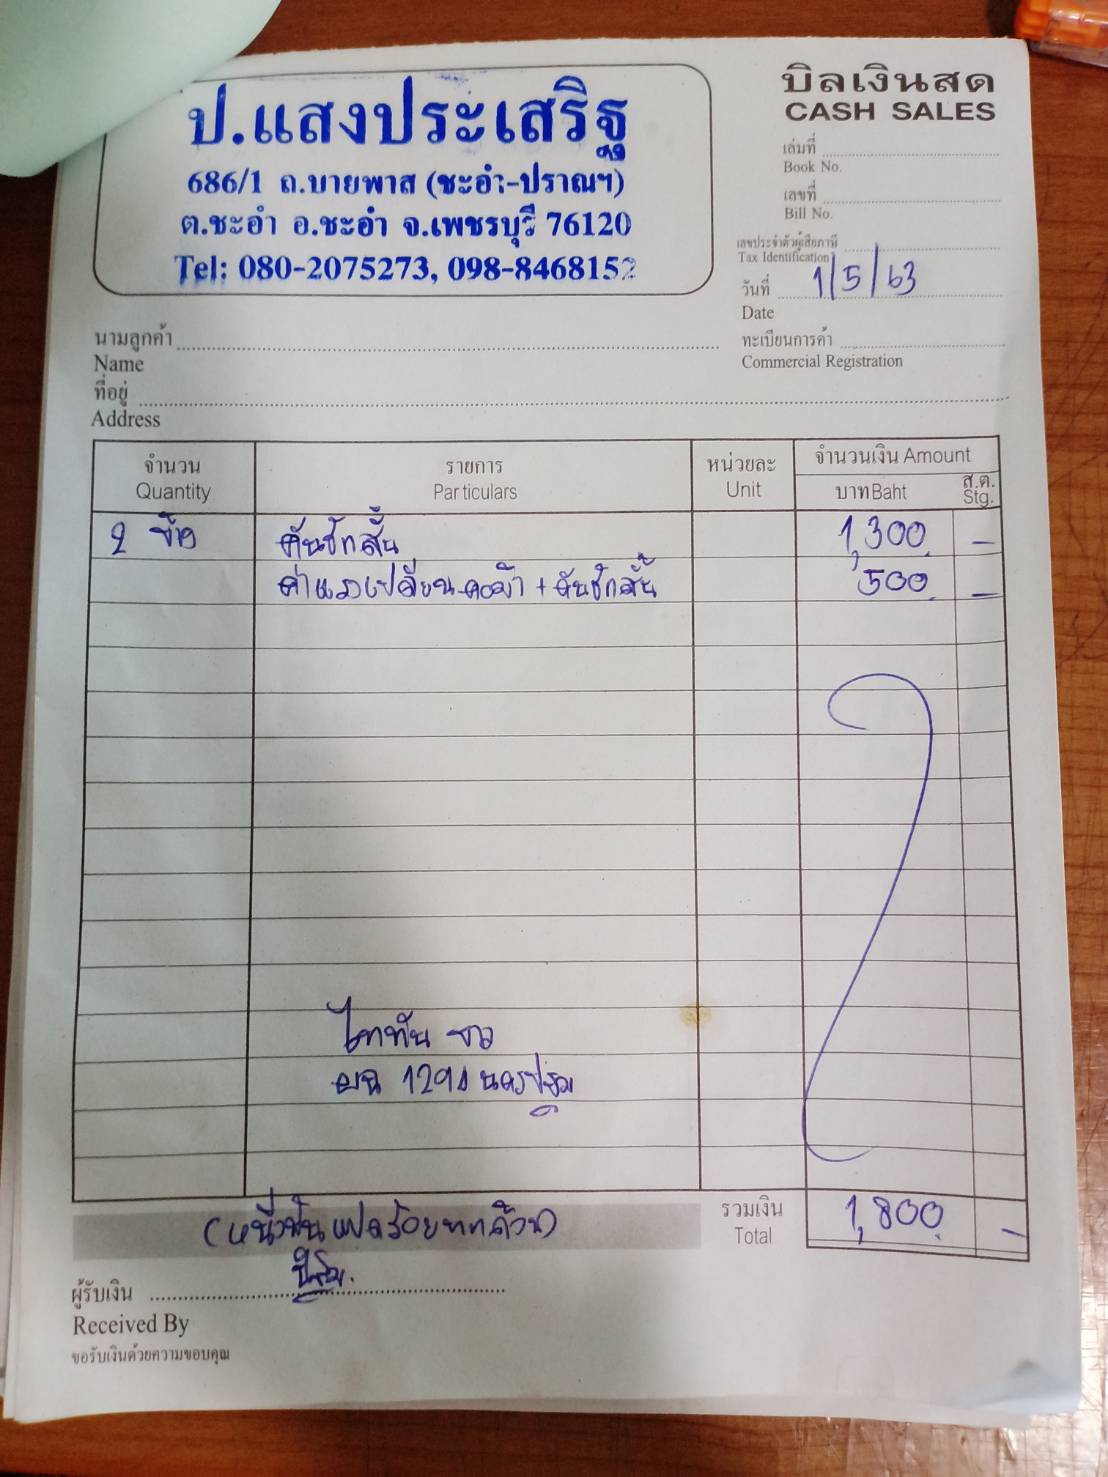 ป.แสงประเสริฐ
686/1 ถ.บายพาส (ชะอำ-ปราณฯ)
ต.ชะอำ อ.ชะอำ จ.เพชรบุรี 76120
Tel: 080-2075273, 098-8468152
บิลเงินสด
CASH SALES
เล่มที่
Book No.
เลขที่
Bill No.
เลขประจำตัวผู้เสียภาษี
Tax Identification
วันที่ 1/5/63
Date
ทะเบียนการค้า
Commercial Registration
นามลูกค้า
Name
ที่อยู่
Address
จำนวน รายการ หน่วยละ จำนวนเงิน Amount
Quantity Particulars Unit บาท Baht ส.ต. Stg.
2 คันชักสั้น 1,300 -
ค่าแรงเปลี่ยนคอม้า + คันชักสั้น 500 -
ไททัน ขาว
1294 นครปฐม
(หนึ่งพันแปดร้อยบาทถ้วน) รวมเงิน 1,800 -
Total
ผู้รับเงิน
Received By
ขอรับเงินด้วยความขอบคุณ